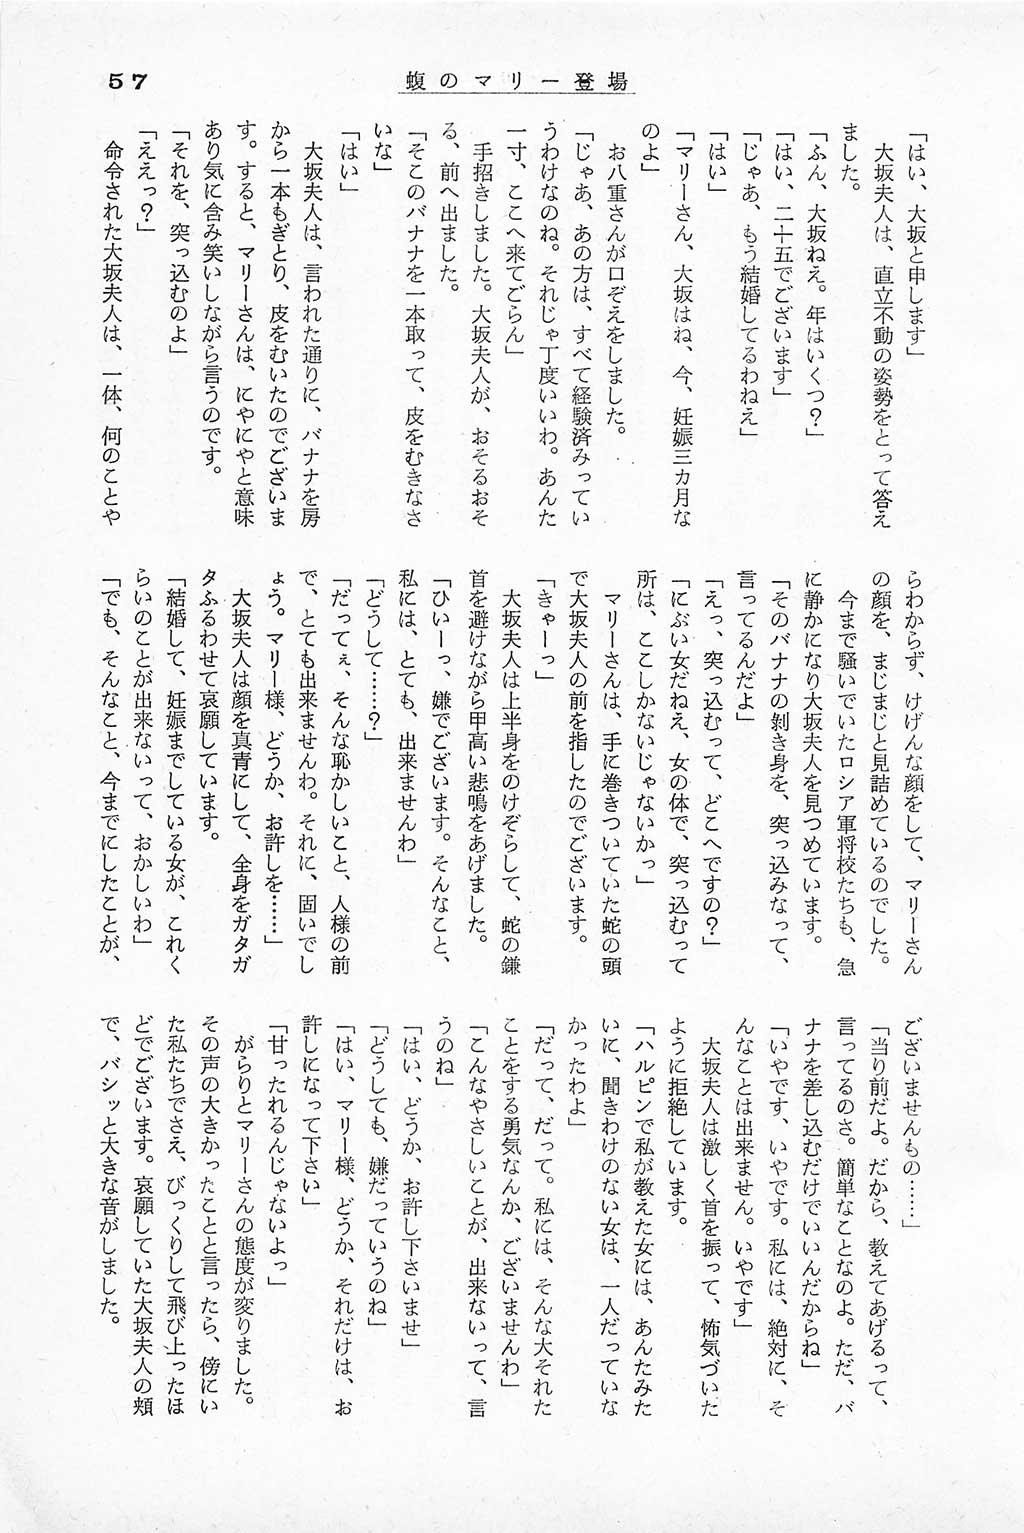 57
蝮のマリー登場
「はい、大坂と申します」
大坂夫人は、直立不動の姿勢をとって答え
ました。
「ふん、大坂ねえ。年はいくつ？」
「はい、二十五でございます」
「じゃあ、もう結婚してるわねえ」
「はい」
「マリーさん、大坂はね、今、妊娠三カ月な
のよ」
お八重さんが口ぞえをしました。
「じゃあ、あの方は、すべて経験済みってい
うわけなのね。それじゃ丁度いいわ。あんた
一寸、ここへ来てごらん」
手招きしました。大坂夫人が、おそるおそ
る、前へ出ました。
「そこのバナナを一本取って、皮をむきなさ
いな」
「はい」
大坂夫人は、言われた通りに、バナナを房
から一本もぎとり、皮をむいたのでございま
す。すると、マリーさんは、にやにやと意味
あり気に含み笑いしながら言うのです。
「それを、突っ込むのよ」
「ええっ？」
命令された大坂夫人は、一体、何のことや
らわからず、けげんな顔をして、マリーさん
の顔を、まじまじと見詰めているのでした。
今まで騒いでいたロシア軍将校たちも、急
に静かになり大坂夫人を見つめています。
「そのバナナの剝き身を、突っ込みなって、
言ってるんだよ」
「えっ、突っ込むって、どこへですの？」
「にぶい女だねえ、女の体で、突っ込むって
所は、ここしかないじゃないかっ」
マリーさんは、手に巻きついていた蛇の頭
で大坂夫人の前を指したのでございます。
「きゃーっ」
大坂夫人は上半身をのけぞらして、蛇の鎌
首を避けながら甲高い悲鳴をあげました。
「ひいーっ、嫌でございます。そんなこと、
私には、とても、出来ませんわ」
「どうして……？」
「だってぇ、そんな恥かしいこと、人様の前
で、とても出来ませんわ。それに、固いでし
ょう。マリー様、どうか、お許しを……」
大坂夫人は顔を真青にして、全身をガタガ
タふるわせて哀願しています。
「結婚して、妊娠までしている女が、これく
らいのことが出来ないって、おかしいわ」
「でも、そんなこと、今までにしたことが、
ございませんもの……」
「当り前だよ。だから、教えてあげるって、
言ってるのさ。簡単なことなのよ。ただ、バ
ナナを差し込むだけでいいんだからね」
「いやです、いやです。私には、絶対に、そ
んなことは出来ません。いやです」
大坂夫人は激しく首を振って、怖気づいた
ように拒絶しています。
「ハルピンで私が教えた女には、あんたみた
いに、聞きわけのない女は、一人だっていな
かったわよ」
「だって、だって。私には、そんな大それた
ことをする勇気なんか、ございませんわ」
「こんなやさしいことが、出来ないって、言
うのね」
「はい、どうか、お許し下さいませ」
「どうしても、嫌だっていうのね」
「はい、マリー様、どうか、それだけは、お
許しになって下さい」
「甘ったれるんじゃないよっ」
がらりとマリーさんの態度が変りました。
その声の大きかったことと言ったら、傍にい
た私たちでさえ、びっくりして飛び上ったほ
どでございます。哀願していた大坂夫人の頬
で、バシッと大きな音がしました。